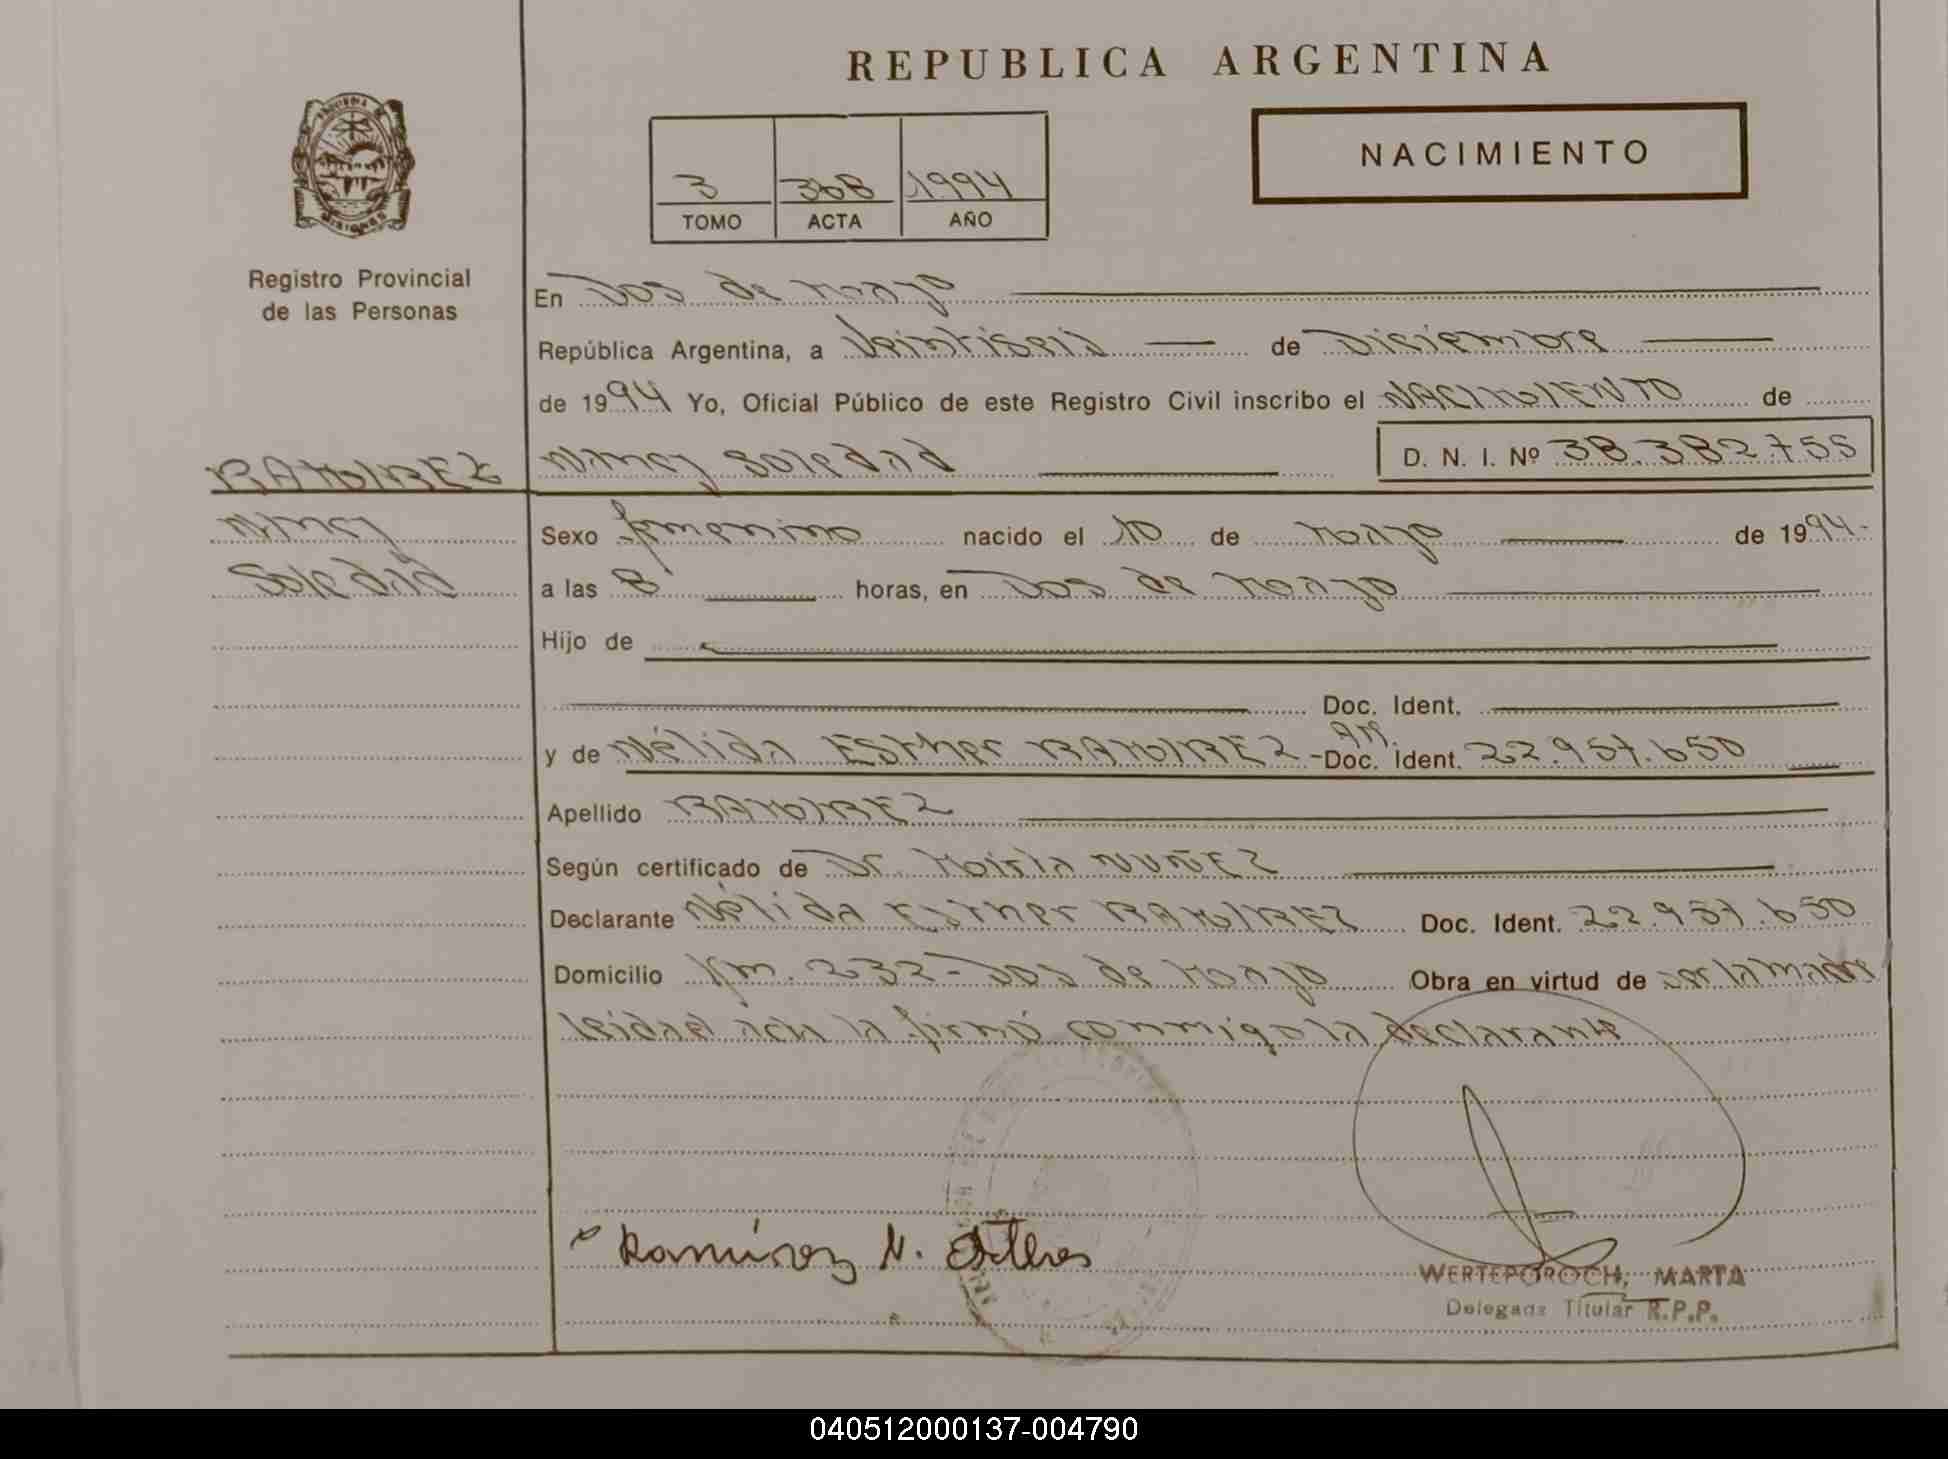 REPUBLICA ARGENTINA
NACIMIENTO
3 368 1994
TOMO ACTA AÑO
PROVINCIA DE
MISIONES
Registro Provincial
de las Personas
En Dos de Mayo
República Argentina, a Veintiseis de Diciembre
de 1994 Yo, Oficial Público de este Registro Civil inscribo el NACIMIENTO de
RAMIREZ Nancy Soledad D. N. I. Nº 38.382.755
Nancy
Soledad
Sexo femenino nacido el 10 de Mayo de 1994-
a las 8 horas, en Dos de Mayo
Hijo de
Doc. Ident.
y de Nélida Esther RAMIREZ - Doc. Ident. 22.957.650
Apellido RAMIREZ
Según certificado de Dr. Mirta NUÑEZ
Declarante Nélida Esther RAMIREZ Doc. Ident. 22.957.650
Domicilio Km. 232 - Dos de Mayo Obra en virtud de ser la madre
leida el acta la firmó conmigo la declarante
Ramírez N. Esther
WERTEPOROCH, MARTA
Delegada Titular R.P.P.
040512000137-004790